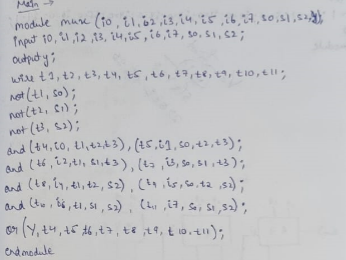 Main →
module mux (i0, i1, i2, i3, i4, i5, i6, i7, s0, s1, s2, y);
input i0, i1, i2, i3, i4, i5, i6, i7, s0, s1, s2;
output y;
wire t1, t2, t3, t4, t5, t6, t7, t8, t9, t10, t11;
not(t1, s0);
not(t2, s1);
not(t3, s2);
and (t4, i0, t1, t2, t3), (t5, i1, s0, t2, t3);
and (t6, i2, t1, s1, t3), (t7, i3, s0, s1, t3);
and (t8, i4, t1, t2, s2), (t9, i5, s0, t2, s2);
and (t10, i6, t1, s1, s2), (t11, i7, s0, s1, s2);
or (Y, t4, t5 t6, t7, t8, t9, t10, t11);
endmodule